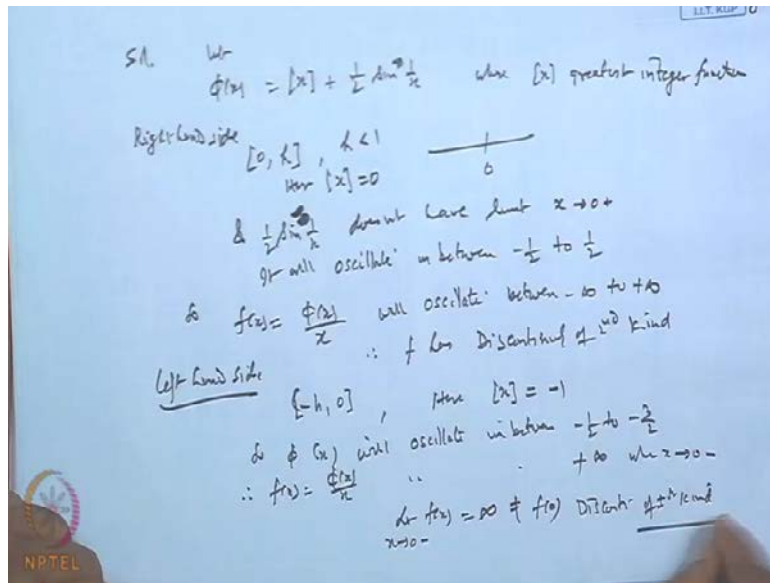 I.I.T. KGP
Sol. let
φ(x) = [x] + 1/2 sin 1/x where [x] greatest integer function
Right hand side [0, h], h<1
0
Here [x]=0
& 1/2 sin 1/x does not have limit x→0+
It will oscillate in between -1/2 to 1/2
So f(x) = φ(x)/x will oscillate between -∞ to +∞
∴ f has Discontinuity of 2nd kind
Left hand side
[-h, 0], Here [x] = -1
So φ(x) will oscillate in between -1/2 to -3/2
∴ f(x) = φ(x)/x " " +∞ when x→0-
x→0- f(x) = ∞ ≠ f(0) Disconti of Ist kind
NPTEL